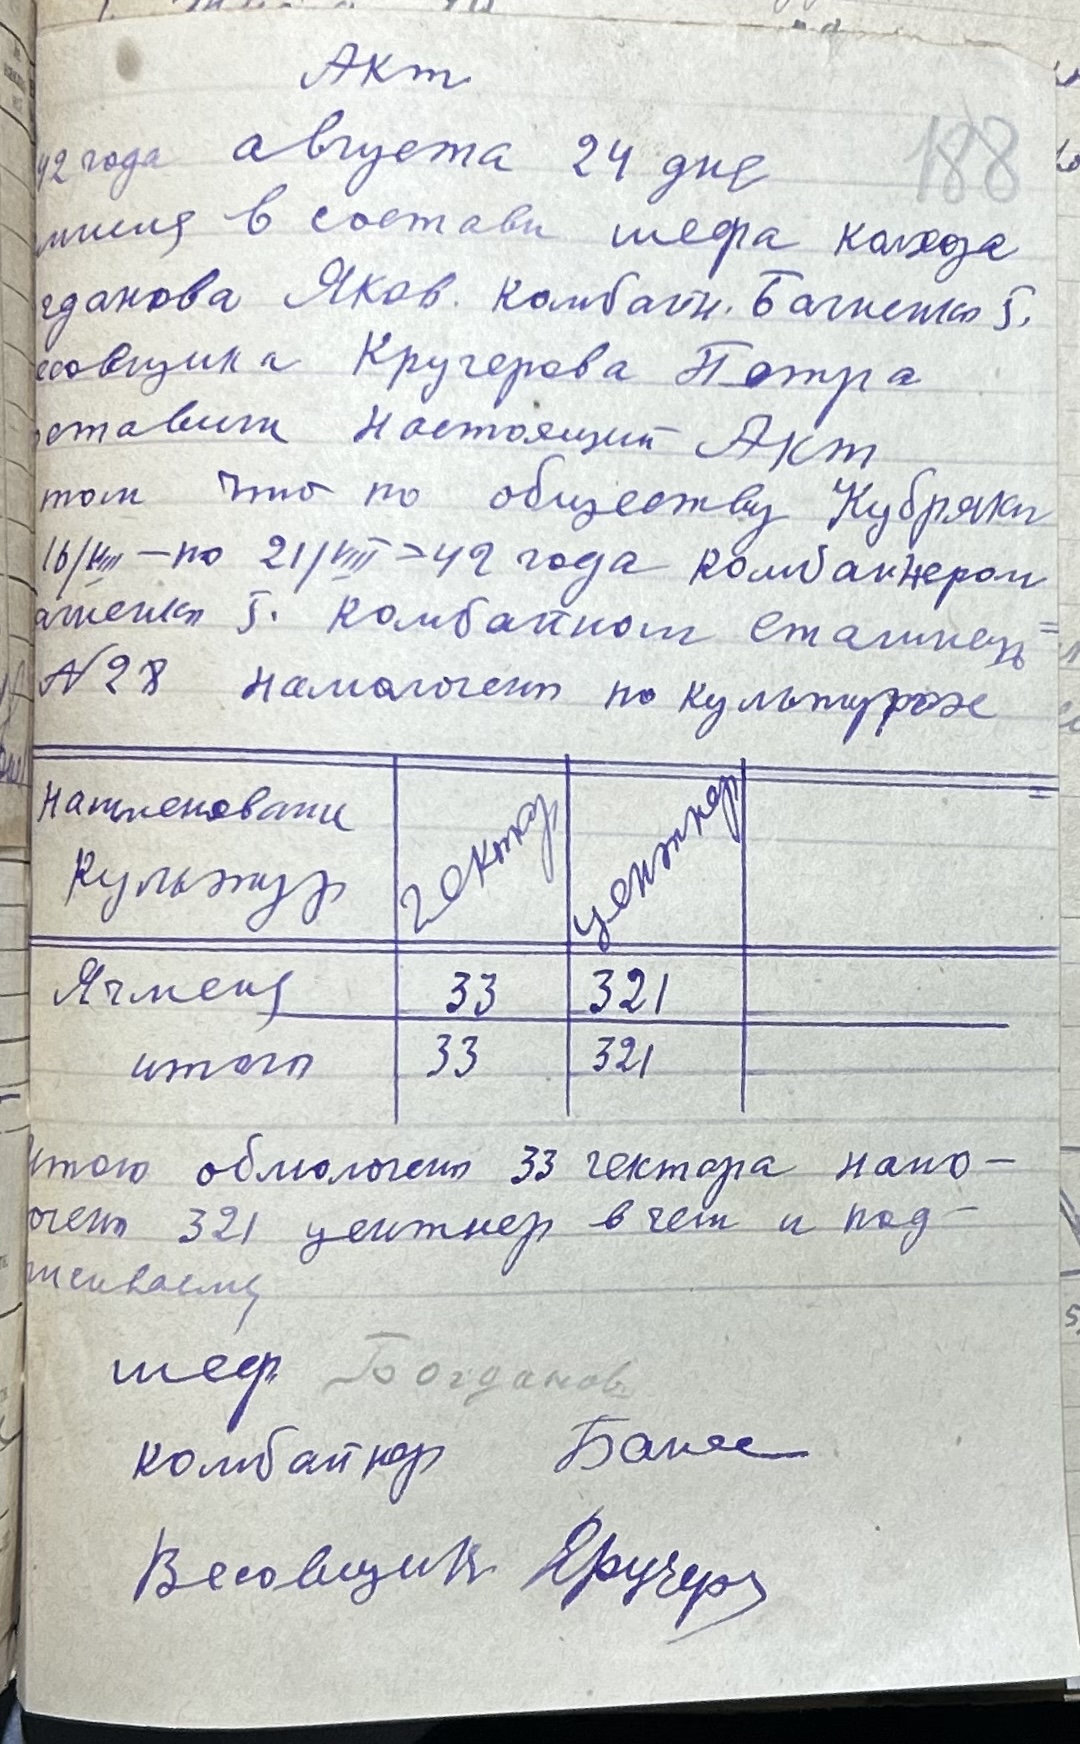 Акт
188
42 года августа 24 дня
в состави шефа колхоза
гданова Яков. комбайн. Багненко
совщика Кручерова Петра
ставили настоящий Акт
том что по обществу Кубряки
16/VIII – по 21/VIII – 42 года комбайнером
агненко комбайном сталинец =
N 28 намолочено по культурох
наименовани гектар центнер
культур
Ячменя 33 321
итого 33 321
итого обмолочено 33 гектара намо-
очено 321 центнер в чем и под-
писиваемся
шеф Богданов
комбайнер
Весовщик Кручер